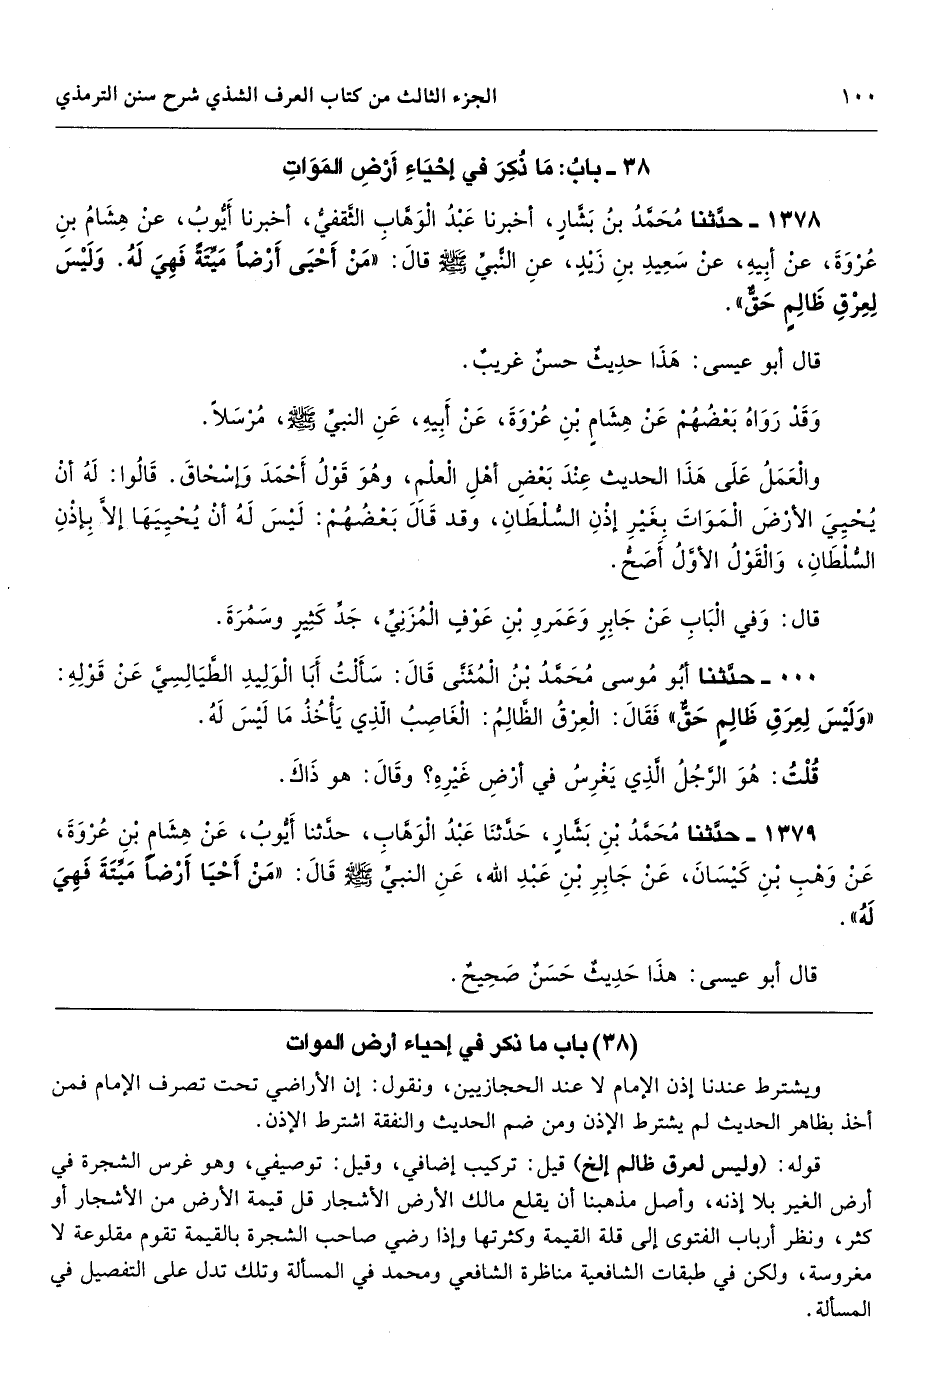 ١٠٠ الجزء الثالث من كتاب العرف الشذي شرح سنن الترمذي
٣٨ ـ بابُ: مَا ذُكِرَ في إحْيَاءِ أَرْضِ المَوَاتِ
١٣٧٨ ـ حدَّثنا مُحَمَّدُ بنُ بَشَّارٍ، أخبرنا عَبْدُ الْوَهَّابِ الثَّقفيُّ، أخبرنا أَيُّوبُ، عنْ هِشَامُ بنِ
عُرْوَةَ، عنْ أبيهِ، عنْ سَعِيدِ بنِ زَيْدٍ، عنِ النَّبيِّ ﷺ قالَ: «مَنْ أَحْيَى أَرْضاً مَيِّتَةً فَهِيَ لَهُ. وَلَيْسَ
لِعِرْقِ ظَالِمٍ حَقٌّ».
قال أبو عيسى: هَذَا حدِيثٌ حسنٌ غريبٌ.
وَقَدْ رَوَاهُ بَعْضُهُمْ عَنْ هِشَامِ بْنِ عُرْوَةَ، عَنْ أَبِيهِ، عَنِ النبيِّ ﷺ، مُرْسَلاً.
والْعَمَلُ عَلَى هَذَا الحديث عِنْدَ بَعْضِ أهْلِ الْعلْمِ، وهُوَ قَوْلُ أَحْمَدَ وَإسْحَاقَ. قَالُوا: لَهُ أنْ
يُحْيِيَ الأرْضَ الْمَوَاتَ بِغَيْرِ إذْنِ السُّلْطَانِ، وقد قَالَ بَعْضُهُمْ: لَيْسَ لَهُ أنْ يُحْيِيَهَا إلاَّ بِإذْنِ
السُّلْطَانِ، وَالْقَوْلُ الأوَّلُ أَصَحُّ.
قال: وَفي الْبَابِ عَنْ جَابِرٍ وَعَمَرِو بْنِ عَوْفٍ الْمُزَنِيِّ، جَدِّ كَثِيرٍ وسَمُرَةَ.
٠٠٠ ـ حدَّثنا أبُو مُوسى مُحَمَّدُ بْنُ الْمُثَنَّى قَالَ: سَأَلْتُ أَبَا الْوَلِيدِ الطَّيَالِسِيَّ عَنْ قَوْلِهِ:
«وَلَيْسَ لِعِرَقِ ظَالِمٍ حَقٌّ» فَقَالَ: الْعِرْقُ الظَّالِمُ: الْغَاصِبُ الّذِي يَأْخُذُ مَا لَيْسَ لَهُ.
قُلْتُ: هُوَ الرَّجُلُ الَّذِي يَغْرِسُ في أرْضِ غَيْرِهِ؟ وقَالَ: هو ذَاكَ.
١٣٧٩ ـ حدَّثنا مُحَمَّدُ بْنِ بَشَّارٍ، حَدَّثنَا عَبْدُ الْوَهَّابِ، حدَّثنا أَيُّوبُ، عَنْ هِشَامِ بْنِ عُرْوَةَ،
عَنْ وَهْبِ بْنِ كَيْسَانَ، عَنْ جَابِرِ بْنِ عَبْدِ الله، عَنِ النبيِّ ﷺ قَالَ: «مَنْ أَحْيَا أَرْضاً مَيِّتَةً فَهِيَ
لَهُ».
قال أبو عيسى: هذَا حَدِيثٌ حَسَنٌ صَحِيحٌ.
(٣٨) باب ما ذكر في إحياء أرض الموات
ويشترط عندنا إذن الإمام لا عند الحجازيين، ونقول: إن الأراضي تحت تصرف الإمام فمن
أخذ بظاهر الحديث لم يشترط الإذن ومن ضم الحديث والنفقة اشترط الإذن.
قوله: (وليس لعرق ظالم إلخ) قيل: تركيب إضافي، وقيل: توصيفي، وهو غرس الشجرة في
أرض الغير بلا إذنه، وأصل مذهبنا أن يقلع مالك الأرض الأشجار قل قيمة الأرض من الأشجار أو
كثر، ونظر أرباب الفتوى إلى قلة القيمة وكثرتها وإذا رضي صاحب الشجرة بالقيمة تقوم مقلوعة لا
مغروسة، ولكن في طبقات الشافعية مناظرة الشافعي ومحمد في المسألة وتلك تدل على التفصيل في
المسألة.